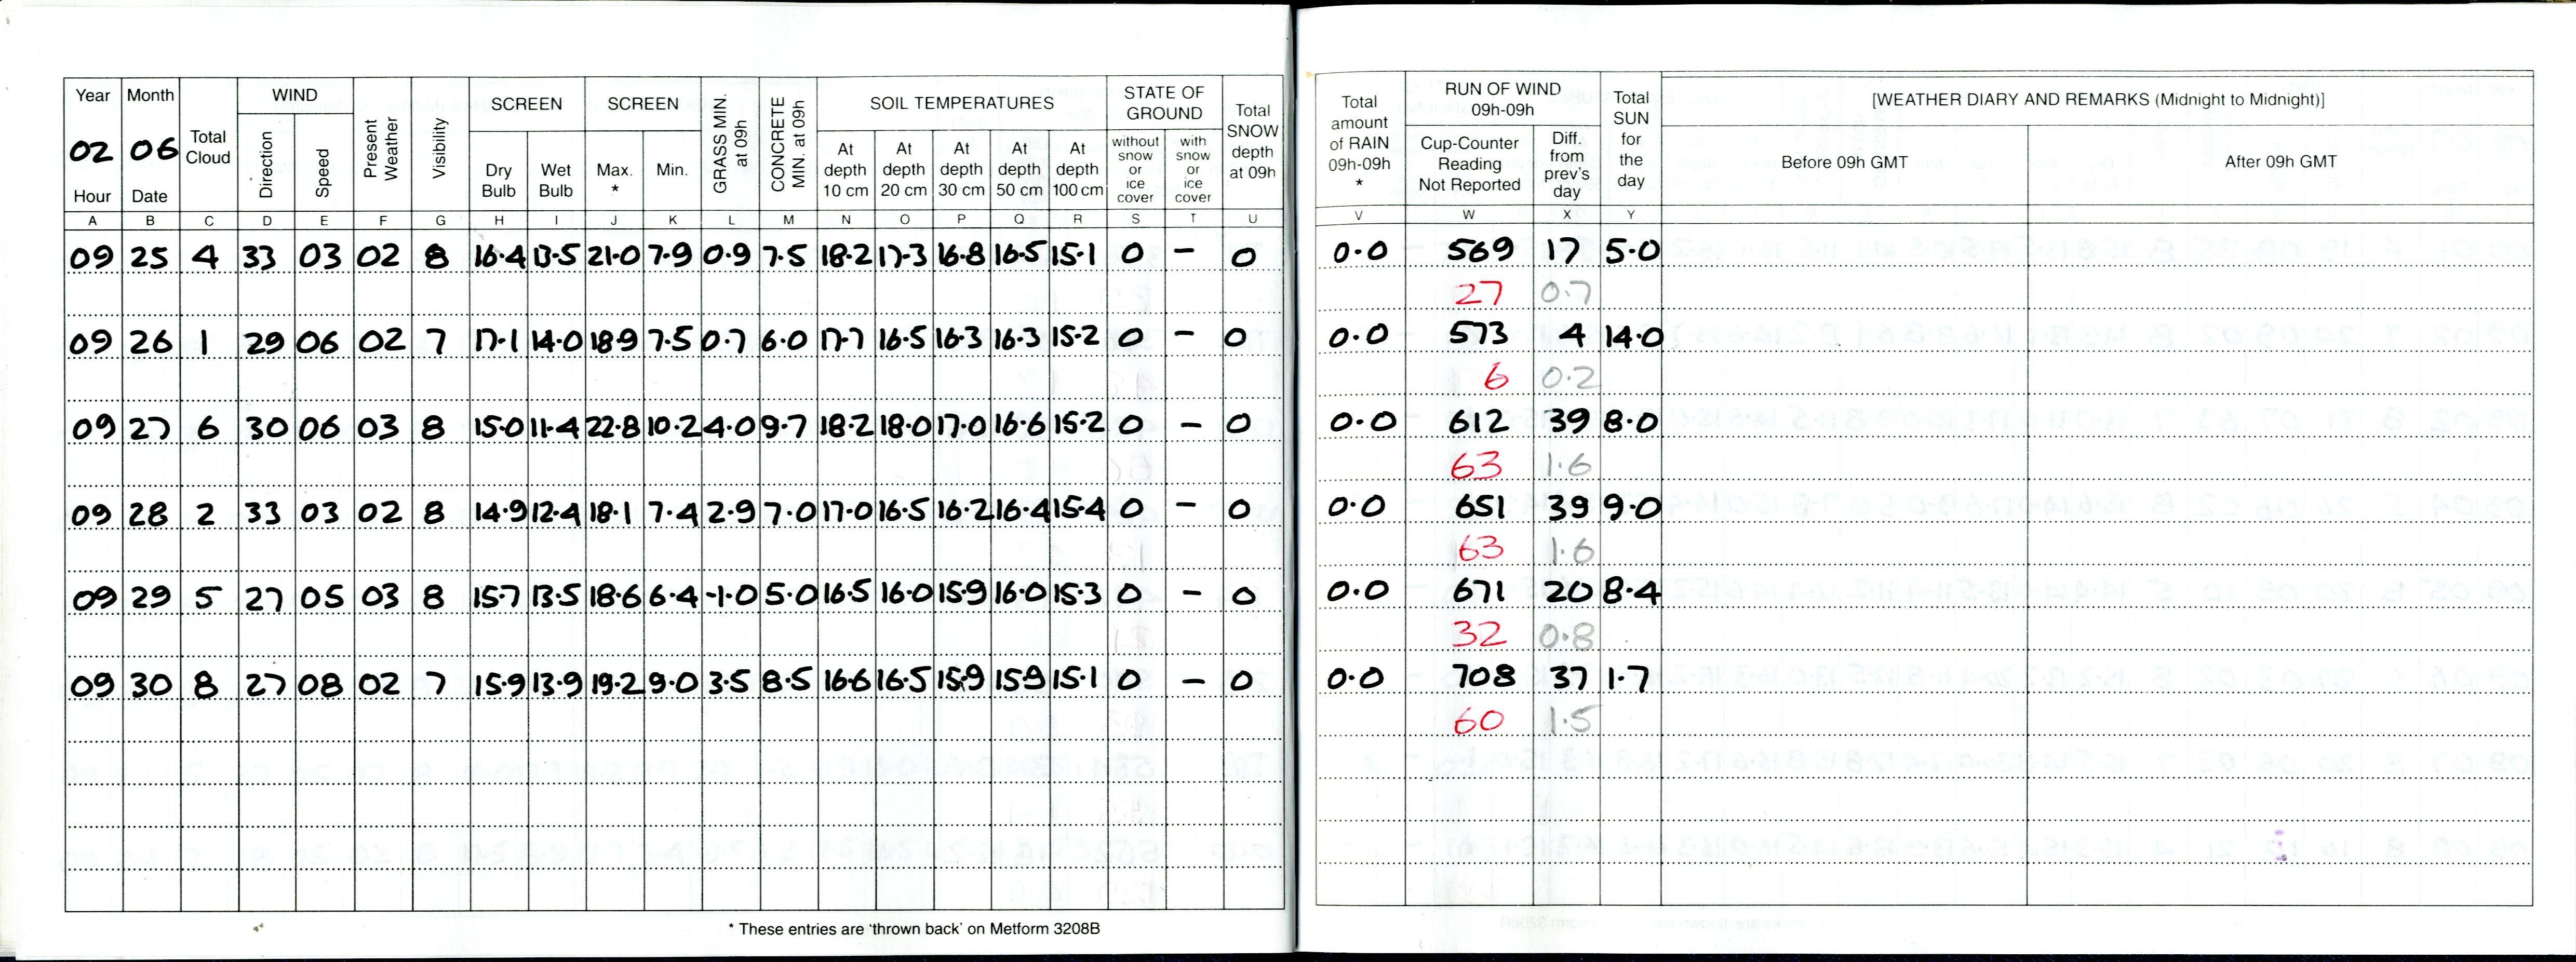 Year Month Total Cloud WIND Present Weather Visibility SCREEN SCREEN GRASS MIN. at 09h CONCRETE MIN. at 09h SOIL TEMPERATURES STATE OF GROUND Total SNOW depth at 09h Total amount of RAIN 09h-09h * RUN OF WIND 09h-09h Total SUN for the day [WEATHER DIARY AND REMARKS (Midnight to Midnight)]
02 06 Direction Speed Dry Bulb Wet Bulb Max. * Min. At depth 10 cm At depth 20 cm At depth 30 cm At depth 50 cm At depth 100 cm without snow or ice cover with snow or ice cover Cup-Counter Reading Not Reported Diff. from prev's day Before 09h GMT After 09h GMT
Hour Date
A B C D E F G H I J K L M N O P Q R S T U V W X Y
09 25 4 33 03 02 8 16.4 13.5 21.0 7.9 0.9 7.5 18.2 17.3 16.8 16.5 15.1 0 - 0 0.0 569 17 5.0
27 0.7
09 26 1 29 06 02 7 17.1 14.0 18.9 7.5 0.7 6.0 17.7 16.5 16.3 16.3 15.2 0 - 0 0.0 573 4 14.0
6 0.2
09 27 6 30 06 03 8 15.0 11.4 22.8 10.2 4.0 9.7 18.2 18.0 17.0 16.6 15.2 0 - 0 0.0 612 39 8.0
63 1.6
09 28 2 33 03 02 8 14.9 12.4 18.1 7.4 2.9 7.0 17.0 16.5 16.2 16.4 15.4 0 - 0 0.0 651 39 9.0
63 1.6
09 29 5 27 05 03 8 15.7 13.5 18.6 6.4 -1.0 5.0 16.5 16.0 15.9 16.0 15.3 0 - 0 0.0 671 20 8.4
32 0.8
09 30 8 27 08 02 7 15.9 13.9 19.2 9.0 3.5 8.5 16.6 16.5 15.9 15.9 15.1 0 - 0 0.0 708 37 1.7
60 1.5
* These entries are 'thrown back' on Metform 3208B